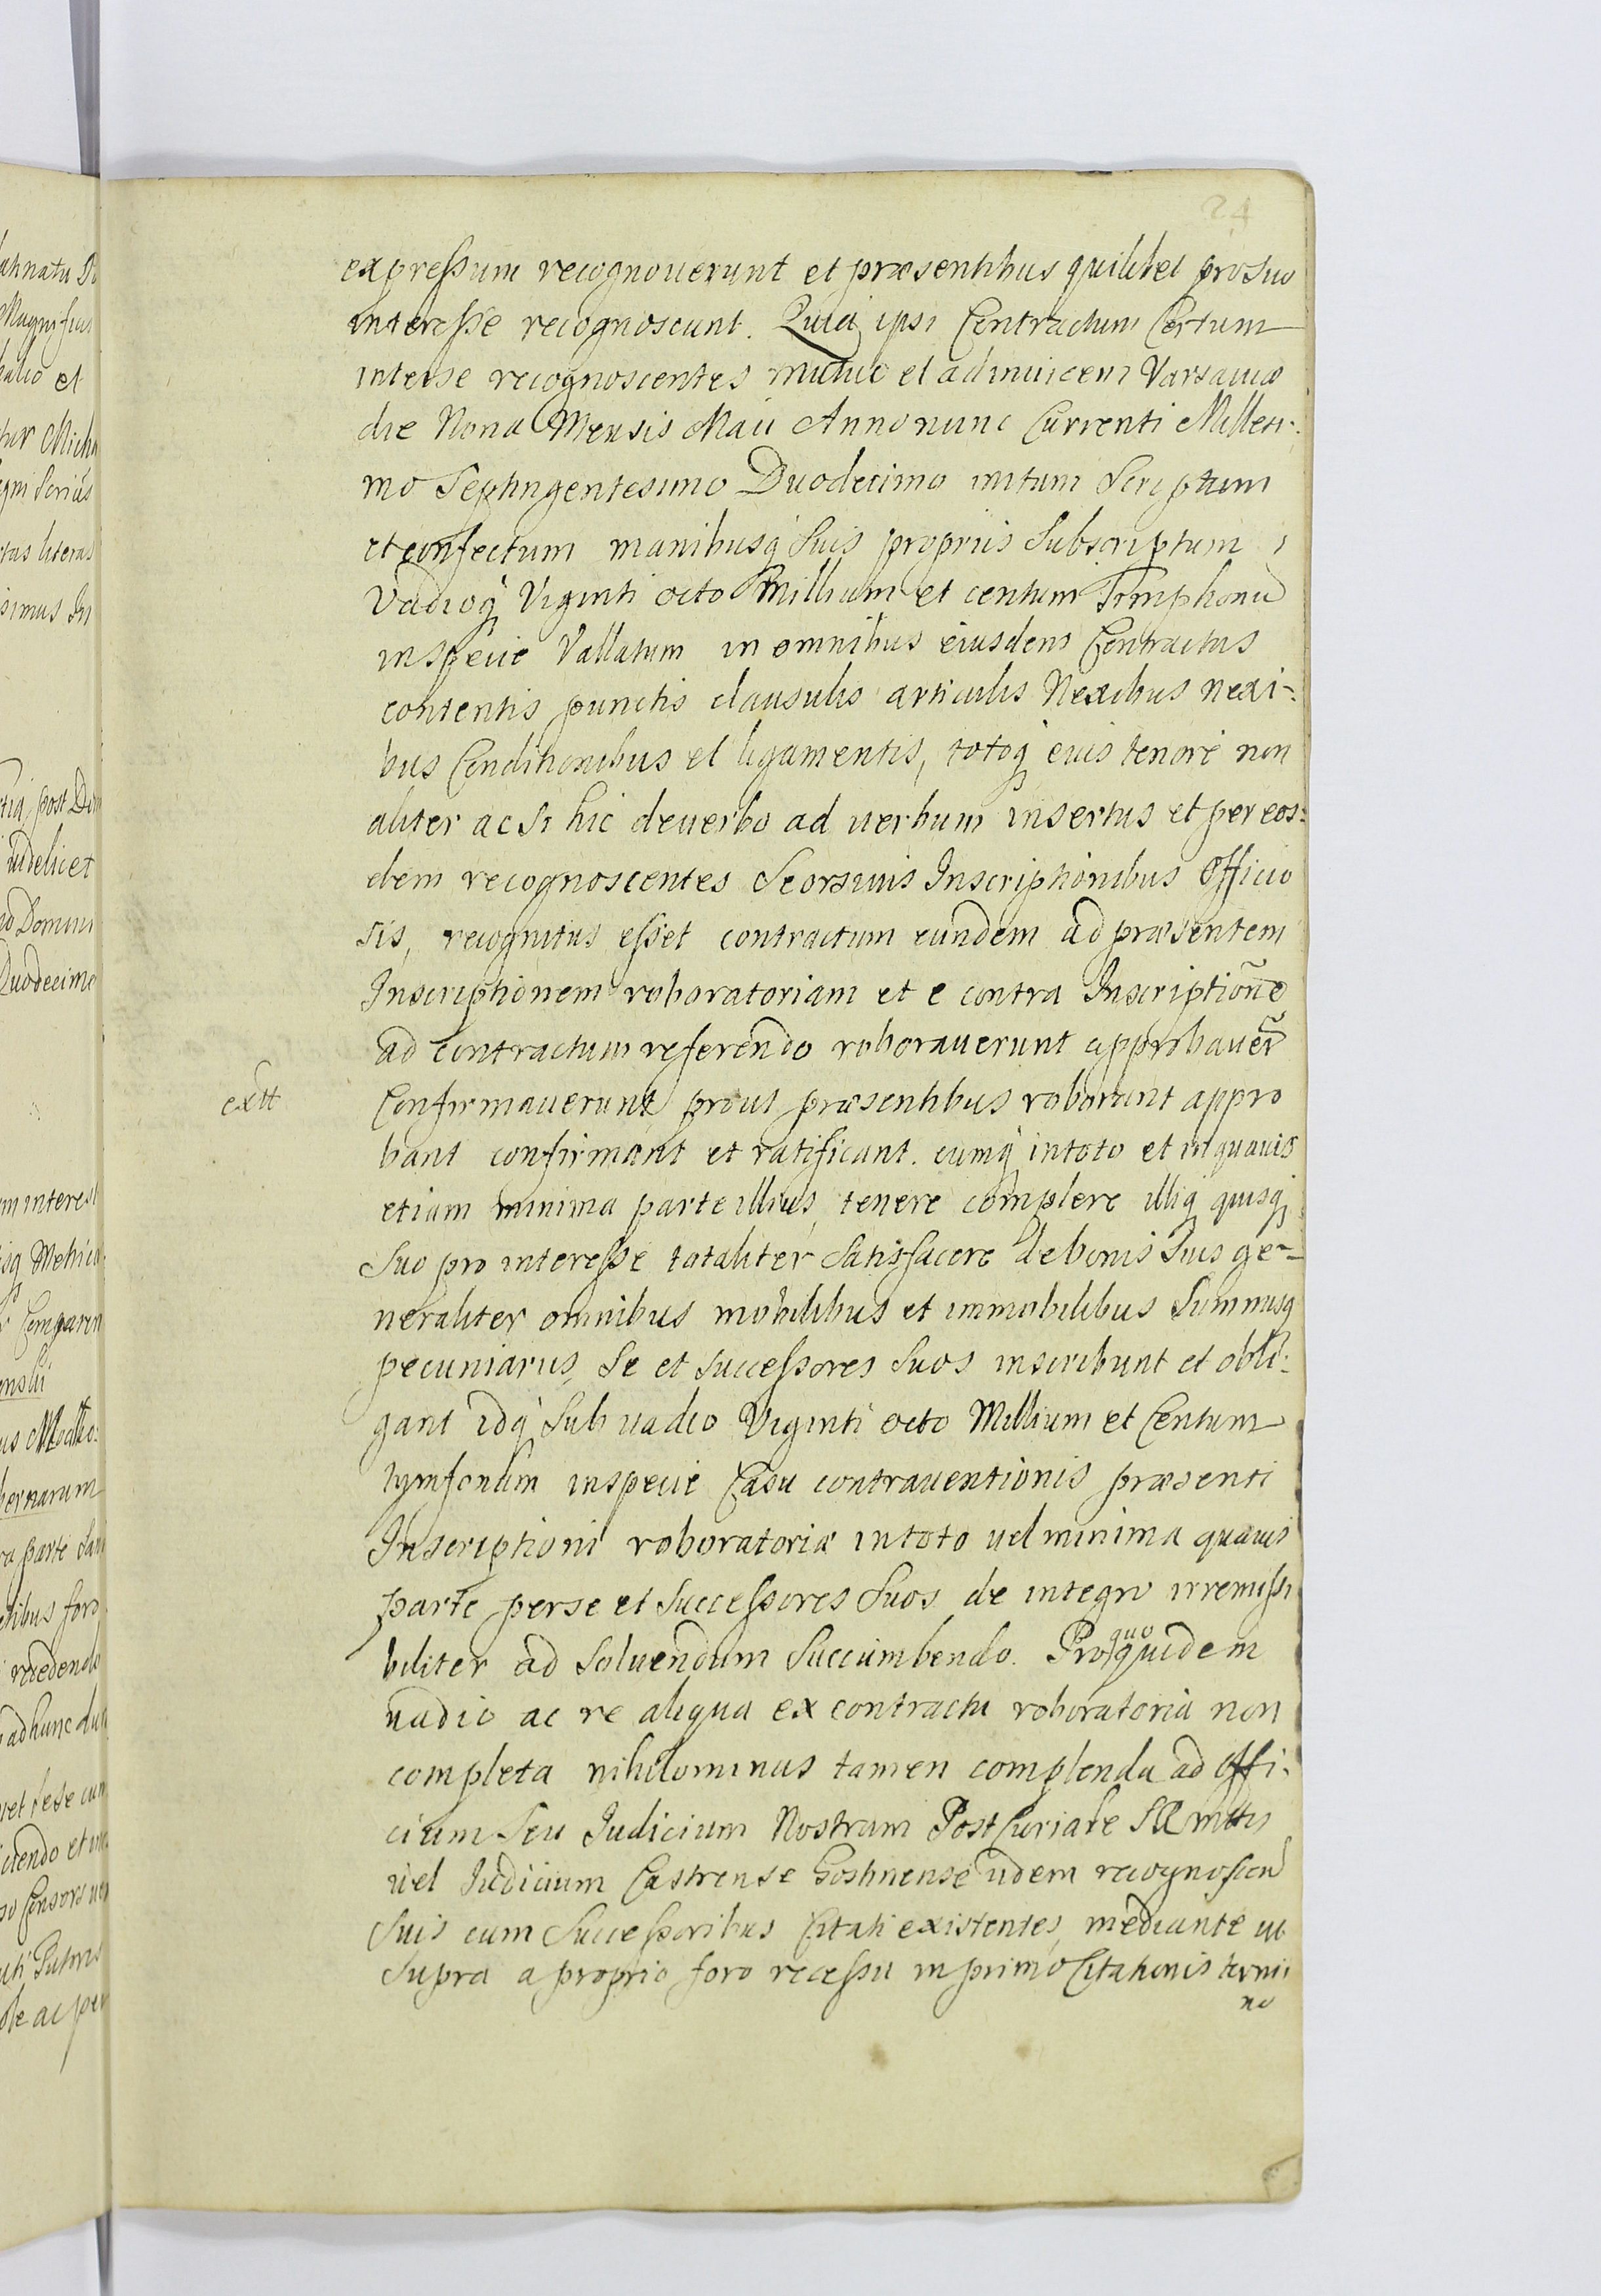 24
expressum recognouerunt et præsentibus quilibet pro Suo
interesse recognoscunt. Quia ipsi Contractum Certum
interse recognoscentes mutuo et adinuicem Varsauiæ
die Nona Mensis Maii Anno nunc Currenti Millesi-
mo Septingentesimo Duodecimo initum Scriptum
et confectum manibusq Suis propriis Subscriptum
Vadioq Viginti octo Millium et centum Timphonũ
in specie Vallatum in omnibus eiusdem Contractus
contentis punctis clausulis articulis Nexibus nexi-
bus Conditionibus et ligamentis, totoq eius tenore non
aliter ac Si hic deuerbo ad uerbum insertus et per eos-
dem recognoscentes Seorsiuis Inscriptionibus Officio
sis, recognitus esset contractum eundem ad præsentem
Inscriptionem roboratoriam et e contra Inscriptionẽ
ad contractum referendo roborauerunt approbauer̃
Confirmauerunt prout præsentibus roborant appro
extt
bant confirmant et ratificant. eumq intoto et in quauis
etiam minima parte illius, tenere complere illiq quisq
Suo pro interesse totaliter Satisfacere de bonis Suis ge-
neraliter omnibus mobilibus et immobilibus Summisq
pecuniariis, Se et Successores Suos inscribunt et obli-
gant idq Sub uadio Viginti octo Millium et Centum
tymfonum inspecie Casu contrauentionis præsenti
Inscriptioni roboratoriæ intoto uel minima quauis
parte perse et Successores Suos de integro irremissi
biliter ad Soluendum Succumbendo. Pro quo quidem
uadio ac re aliqua ex contractu roboratoria non
completa nihilominus tamen complenda ad Offi-
cium Seu Iudicium Nostrum Post Curiale
uel Iudicium Castrense Gostinense iidem recognoscen
Suis cum Successoribus Citati existentes, mediante ut
Supra a proprio foro recessu in primo Citationis termi
no